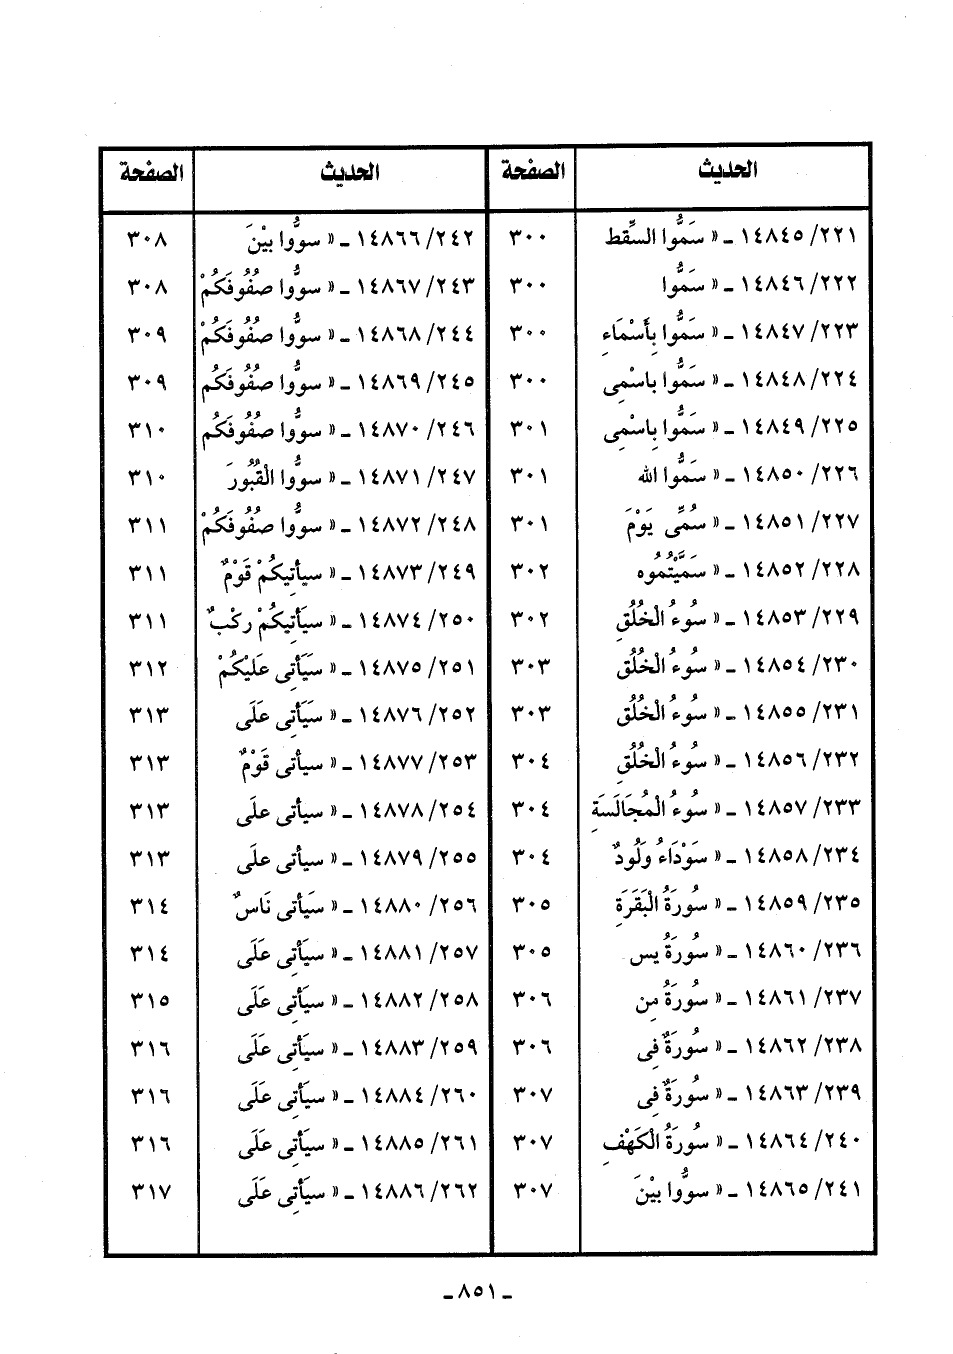 الحديث الصفحة الحديث الصفحة
٢٢١/ ١٤٨٤٥ ـ « سَمُّوا السِّقط ٣٠٠ ٢٤٢/ ١٤٨٦٦ ـ « سووُّا بيْنَ ٣٠٨
٢٢٢/ ١٤٨٤٦ ـ « سَمُّوا ٣٠٠ ٢٤٣/ ١٤٨٦٧ ـ « سووُّا صفُوفَكُمْ ٣٠٨
٢٢٣/ ١٤٨٤٧ ـ « سَمُّوا بِأَسْمَاءِ ٣٠٠ ٢٤٤/ ١٤٨٦٨ ـ « سووُّا صُفُوفَكُمْ ٣٠٩
٢٢٤/ ١٤٨٤٨ ـ « سَمُّوا باسْمِى ٣٠٠ ٢٤٥/ ١٤٨٦٩ ـ « سووُّا صفُوفَكُم ٣٠٩
٢٢٥/ ١٤٨٤٩ ـ « سَمُّوا بِاسْمِى ٣٠١ ٢٤٦/ ١٤٨٧٠ ـ « سووُّا صفُوفَكُم ٣١٠
٢٢٦/ ١٤٨٥٠ ـ « سَمُّوا الله ٣٠١ ٢٤٧/ ١٤٨٧١ ـ « سووُّا الْقُبُورَ ٣١٠
٢٢٧/ ١٤٨٥١ ـ « سُمِّى يَوْمَ ٣٠١ ٢٤٨/ ١٤٨٧٢ ـ « سووُّا صُفُوفَكُمْ ٣١١
٢٢٨/ ١٤٨٥٢ ـ « سَمَّيْتُموه ٣٠٢ ٢٤٩/ ١٤٨٧٣ ـ « سيأتِيكُمْ قَوْمٌ ٣١١
٢٢٩/ ١٤٨٥٣ ـ « سُوءُ الْخُلُقِ ٣٠٢ ٢٥٠/ ١٤٨٧٤ ـ « سيَأتِيكُمْ ركْبٌ ٣١١
٢٣٠/ ١٤٨٥٤ ـ « سُوءُ الْخُلُقِ ٣٠٣ ٢٥١/ ١٤٨٧٥ ـ « سَيَأتِى عَلَيْكُمْ ٣١٢
٢٣١/ ١٤٨٥٥ ـ « سُوءُ الْخُلُقِ ٣٠٣ ٢٥٢/ ١٤٨٧٦ ـ « سَيَأتِى عَلَى ٣١٣
٢٣٢/ ١٤٨٥٦ ـ « سُوءُ الْخُلُقِ ٣٠٤ ٢٥٣/ ١٤٨٧٧ ـ « سيأتى قَوْمٌ ٣١٣
٢٣٣/ ١٤٨٥٧ ـ « سُوءُ الْمُجَالَسَةِ ٣٠٤ ٢٥٤/ ١٤٨٧٨ ـ « سيأتى علَى ٣١٣
٢٣٤/ ١٤٨٥٨ ـ « سَوْدَاءُ وَلُودٌ ٣٠٤ ٢٥٥/ ١٤٨٧٩ ـ « سيأتى علَى ٣١٣
٢٣٥/ ١٤٨٥٩ ـ « سُورَةُ الْبَقَرَةِ ٣٠٥ ٢٥٦/ ١٤٨٨٠ ـ « سَيأتى نَاسٌ ٣١٤
٢٣٦/ ١٤٨٦٠ ـ « سُورَةُ يس ٣٠٥ ٢٥٧/ ١٤٨٨١ ـ « سيَأتِى عَلَى ٣١٤
٢٣٧/ ١٤٨٦١ ـ « سُورَةُ مِن ٣٠٦ ٢٥٨/ ١٤٨٨٢ ـ « سيَأتِى عَلَى ٣١٥
٢٣٨/ ١٤٨٦٢ ـ « سُورَةٌ فِى ٣٠٦ ٢٥٩/ ١٤٨٨٣ ـ « سيَأتِى عَلَى ٣١٦
٢٣٩/ ١٤٨٦٣ ـ « سُورَةٌ فِى ٣٠٧ ٢٦٠/ ١٤٨٨٤ ـ « سيَأتِى عَلَى ٣١٦
٢٤٠/ ١٤٨٦٤ ـ « سُورَةُ الْكَهْفِ ٣٠٧ ٢٦١/ ١٤٨٨٥ ـ « سيَأتِى عَلَى ٣١٦
٢٤١/ ١٤٨٦٥ ـ « سووُّا بيْنَ ٣٠٧ ٢٦٢/ ١٤٨٨٦ ـ « سيَأتِى عَلَى ٣١٧
ـ ٨٥١ ـ